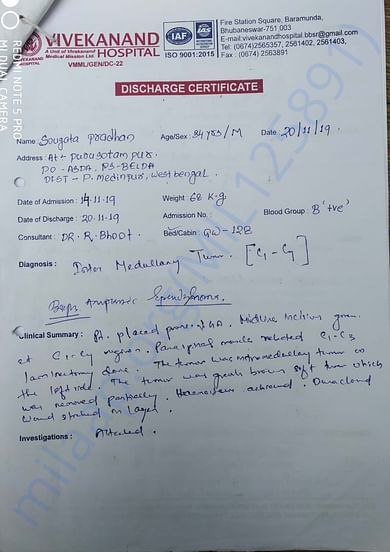 VIVEKANAND
HOSPITAL
A Unit of Vivekanand
Medical Mission Ltd.
VMML/GEN/DC-22
IAF
IAS
ISO 9001:2015
Fire Station Square, Baramunda,
Bhubaneswar-751 003
E-mail:vivekanandhospital.bbsr@gmail.com
Tel: (0674)2565357, 2561402, 2561403,
Fax : (0674) 2563891
DISCHARGE CERTIFICATE
Name Sougata Pradhan Age/Sex : 34 yrs/M Date 20/11/19.
Address : At+ Purusotampur.
PO - ASDA, PS-BELDA
DIST - P. Medinpur, West bengal.
Date of Admission : 14.11.19 Weight 68 K.g
Date of Discharge : 20.11.19 Admission No. : Blood Group : B 'tve'
Consultant : DR. R. Bhoot. Bed/Cabin : GW-12B
Diagnosis : Medullary Tumor. [C1 - C4]
Ependymoma.
Clinical Summary : Pt. placed prone GA. Midline incision given
at C1-C4 region. Paraspinal muscle retracted C1-C3
laminectomy done. The tumor was tumor in
the left side. The tumor was greyish brown soft tumor which
was removed partially. Haemostasis achieved. Dura closed
Wound stitched in layer.
Investigations : Attached.
REDMI NOTE 5 PRO
MI DUAL CAMERA